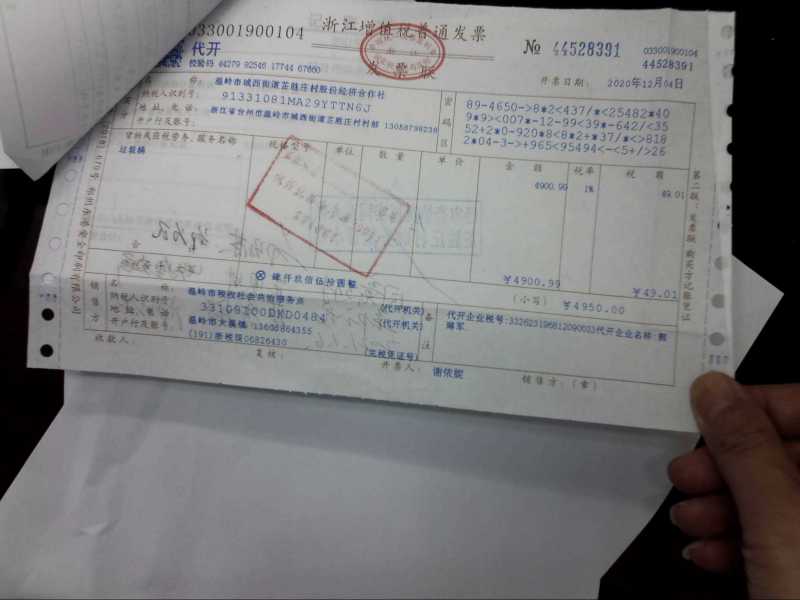 033001900104
浙江增值税普通发票
№ 44528391
033001900104
44528391
代开
校验码 44279 92546 17744 67660
发票联
开票日期： 2020年12月04日
名 称： 温岭市城西街道芷胜庄村股份经济合作社
纳税人识别号： 91331081MA29YTTN6J
地 址、电 话： 浙江省台州市温岭市城西街道芷胜庄村村部 13058798238
开户行及账号：
密码区
89-4650->8*2<437/*<25482*40
9*9><007*-12-99<39*-642/<35
52+2*0-920*8<8*2+*37/*<>818
2*04-3->+965<95494<-<5+/>26
货物或应税劳务、服务名称
规格型号
单位
数 量
单 价
金 额
税率
税 额
4900.99
1%
49.01
合
￥4900.99
￥49.01
⊗ 肆仟玖佰伍拾圆整
(小写)
￥4950.00
销售方
名 称：
纳税人识别号： 33108200DKD0484 (代开机关)
地 址、电 话： 温岭市大溪镇 13606864355 (代开机关)
开户行及账号： (191)浙税现06826430 (完税凭证号)
备注
代开企业税号:332623196812090033代开企业名称:
收款人：
复核：
开票人： 谢依妮
销售方：(章)
第二联：发票联 购买方记账凭证